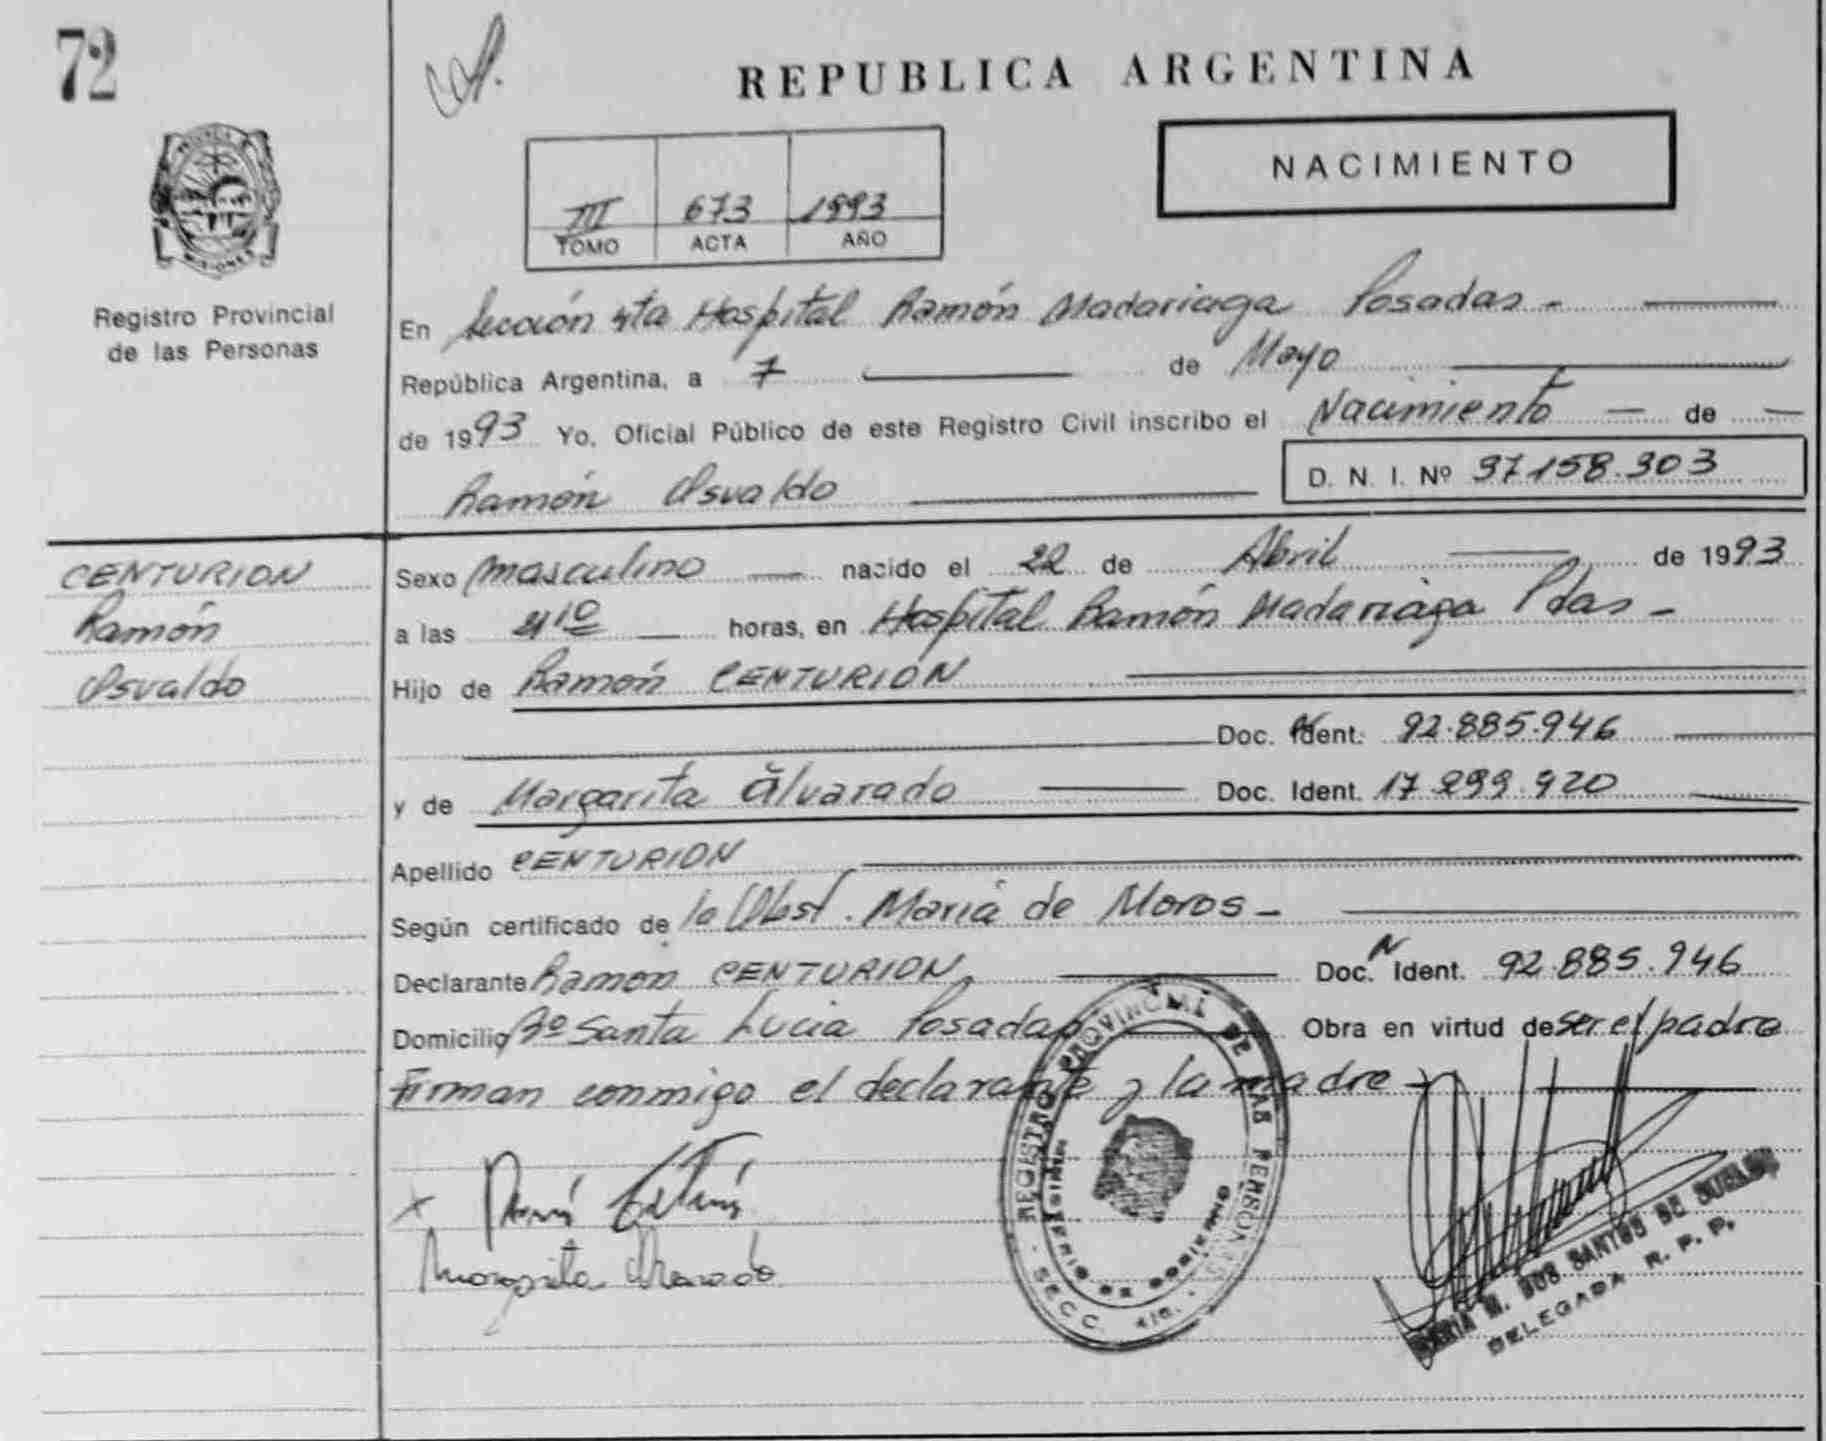 72
REPUBLICA ARGENTINA
NACIMIENTO
III 673 1993
TOMO ACTA AÑO
PROVINCIA
MISIONES
Registro Provincial
de las Personas
En Sección 4ta Hospital Ramón Madariaga Posadas -
República Argentina, a 7 de Mayo
de 1993 Yo, Oficial Público de este Registro Civil inscribo el Nacimiento — de —
Ramón Osvaldo D. N. I. Nº 37.158.303
CENTURION
Ramón
Osvaldo
Sexo masculino — nacido el 22 de Abril de 1993
a las horas, en Hospital Ramón Madariaga Pdas -
Hijo de Ramón CENTURIÓN
Doc. Ident. 92.885.946
y de Margarita Alvarado Doc. Ident. 17.299.920
Apellido CENTURION
Según certificado de la Obst. Maria de Moros -
Declarante Ramon CENTURION Doc. N Ident. 92.885.946
Domicilio Bº Santa Lucia Posadas Obra en virtud de ser el padre
Firman conmigo el declarante y la madre -
REGISTRO PROVINCIAL DE LAS PERSONAS
MINISTERIO DE GOBIERNO
SECC. 4ta.
Margarita Alvarado
MARIA M. DOS SANTOS DE
DELEGADA R. P. P.